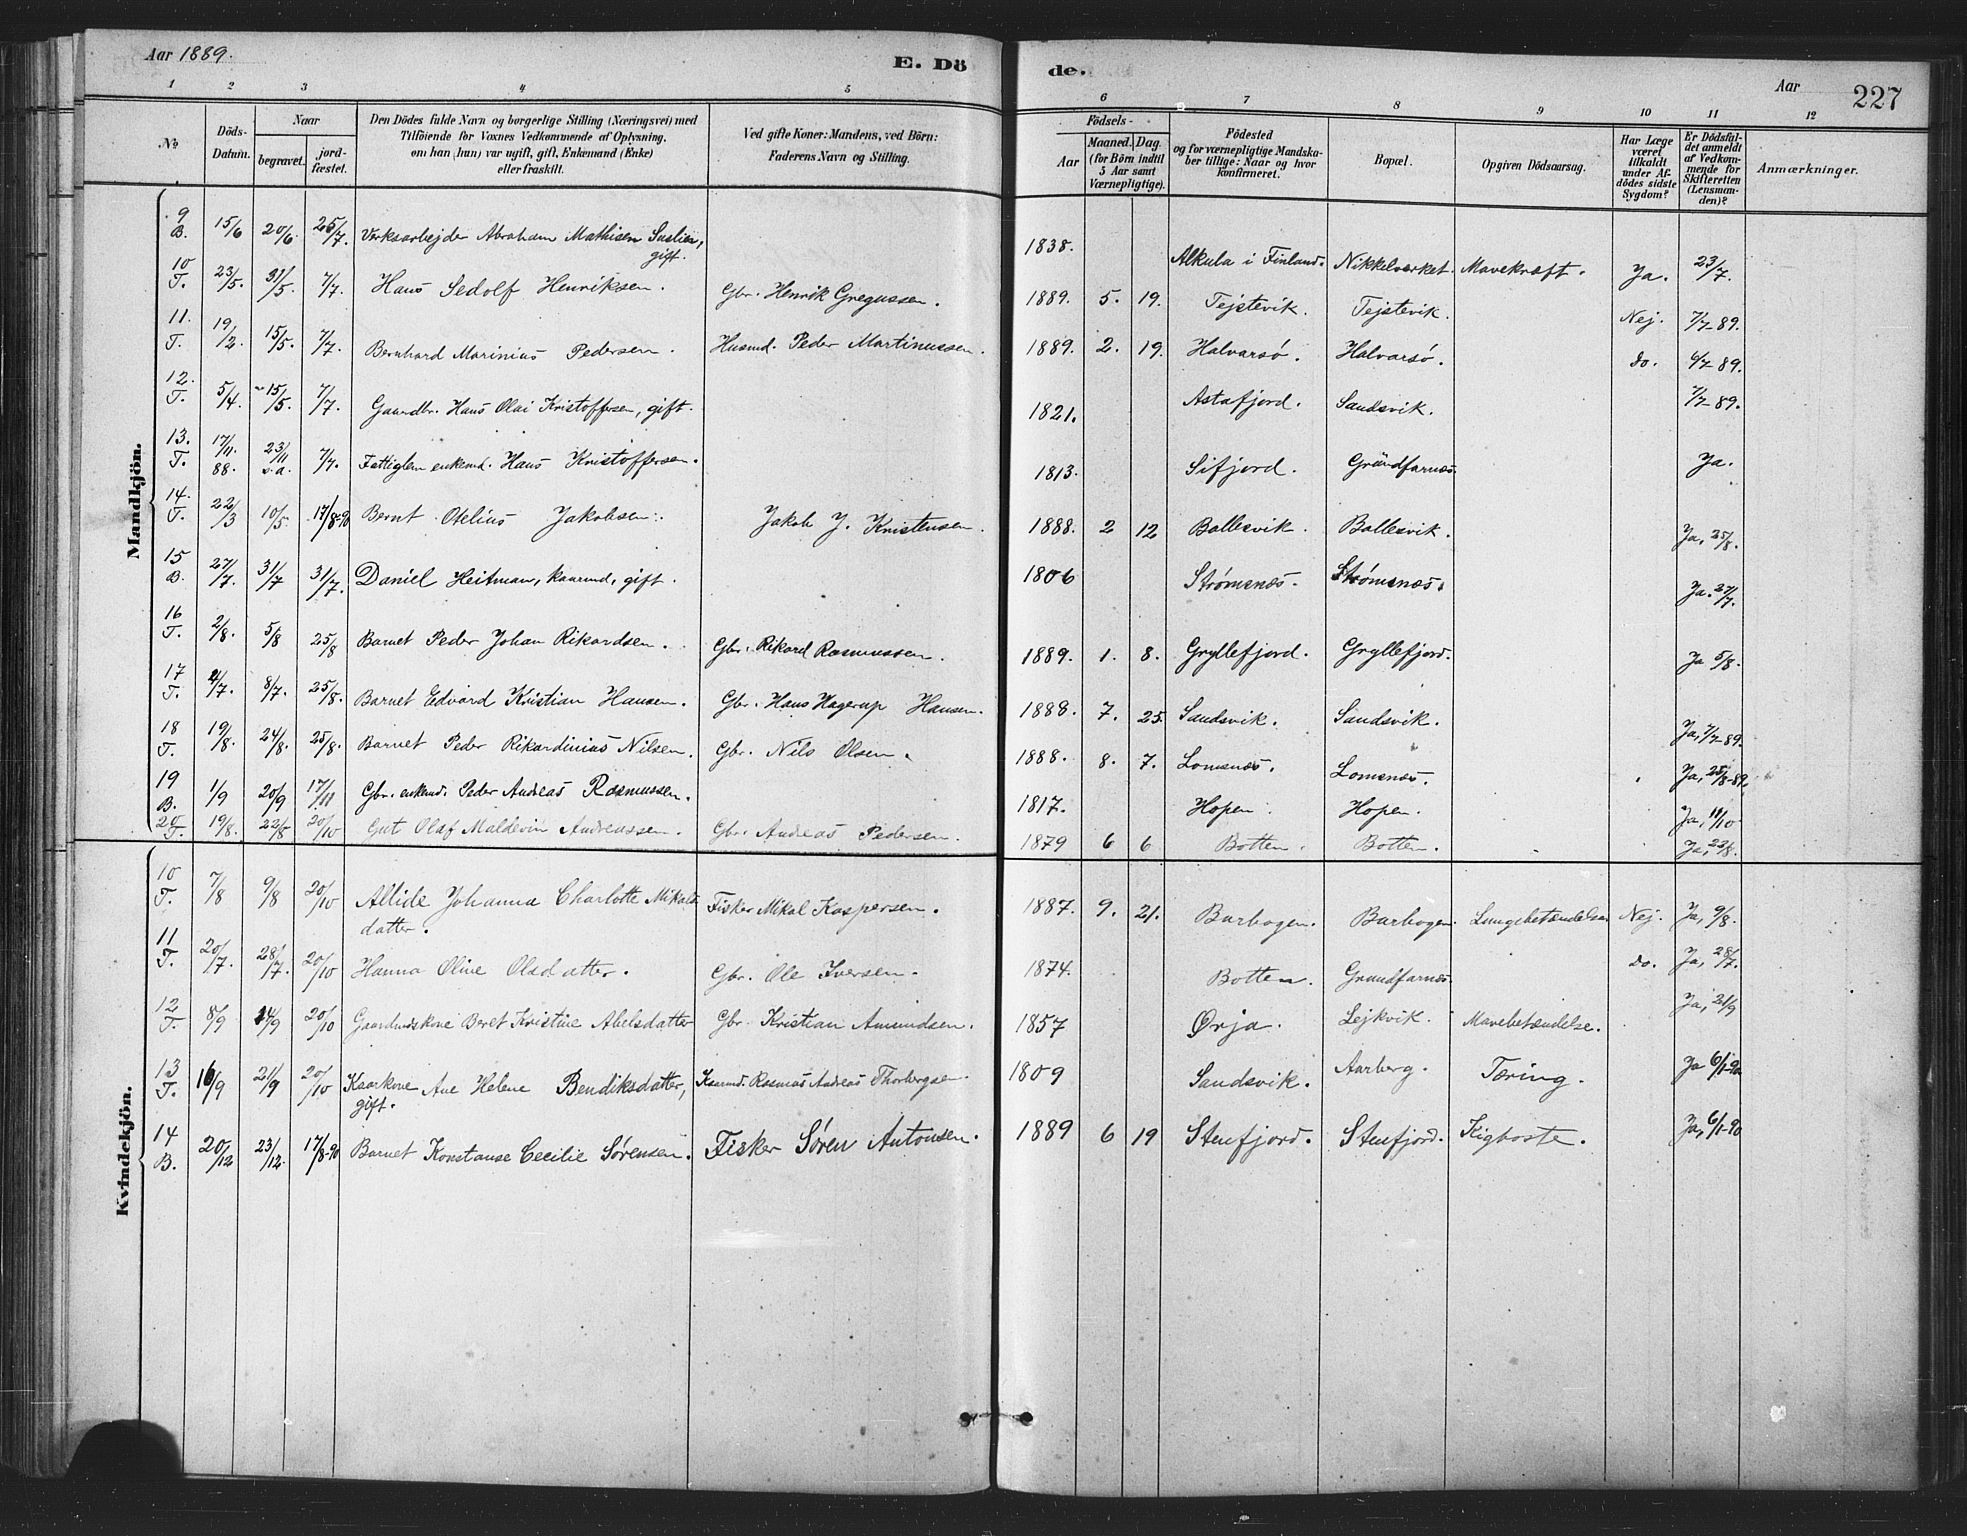 Aar 1889.
E. Dö de.
Aar 227
1 2 3 4 5 6 7 8 9 10 11 12
№
Döds-Datum.
Naar
begravet.
jord-fæstet.
Den Dödes fulde Navn og borgerlige Stilling (Næringsvei) med
Tilföiende for Voxnes Vedkommende af Oplysning,
om han (hun) var ugift, gift, Enkemand (Enke)
eller fraskilt.
Ved gifte Koner: Mandens, ved Börn:
Faderens Navn og Stilling.
Födsels-
Aar
Maaned. Dag.
(for Börn indtil
5 Aar samt
Værnepligtige).
Födested
og for værnepligtige Mandska-
ber tillige: Naar og hvor
konfirmeret.
Bopæl.
Opgiven Dödsaarsag.
Har Læge
været
tilkaldt
under Af-
dödes sidste
Sygdom?
Er Dödsfal-
det anmeldt
af Vedkom-
mende for
Skifteretten
(Lensman-
den)?
Anmærkninger.
Mandkjön.
9 B. 15/6 20/6 25/7. Verksarbejder Abraham Mathisen gift. 1838. Alkula i Finland. Nikkelværket. Mavekræft. Ja. 23/7.
10 T. 23/5. 31/5. 7/7. Hans Sedolf Henriksen. Gbr. Henrik Gregussen. 1889. 5. 19. Tejstevik. Tejstevik. Nej. 7/7-89.
11. T. 19/2. 15/5. 7/7. Bernhard Marinius Pedersen. Husmd. Peder Martinussen. 1889. 2. 19. Halvarsø. Halvarsø. do. 6/7-89.
12. T. 5/4. 15/5. 7/7. Gaardbr. Hans Olai Kristoffersen, gift. 1821. Astafjord. Sandsvik. 7/7-89.
13. T. 17/11. 88. 23/11 s.a. 7/7. Fattiglem enkemd. Hans Kristoffersen. 1813. Sifjord. Gründfarnæs. Ja.
14. T. 22/3 10/5. 17/8-90 Bernt Otelius Jakobsen. Jakob J. Kristensen. 1888. 2 12 Ballesvik. Ballesvik. Ja, 25/8.
15 B. 27/7. 31/7 31/7. Daniel Heitman, kaarmd, gift. 1806 Strømsnæs. Strømsnæs. Ja. 27/7.
16 T. 2/8. 5/8 25/8 Barnet Peder Johan Rikardsen. Gbr. Rikard Rasmussen. 1889. 1. 8. Gryllefjord. Gryllefjord. Ja 5/8.
17 T. 4/7. 8/7. 25/8. Barnet Edvard Kristian Hansen. Gbr. Hans Hagerup Hansen. 1888. 7. 25. Sandsvik. Sandsvik. Ja, 7/7-89.
18 T. 19/8. 24/8. 25/8. Barnet Peder Rikardinius Nilsen. Gbr. Nils Olsen. 1888. 8. 7. Lomsnæs. Lomsnæs. Ja, 25/8-89.
19 B. 1/9 20/9 17/11 Gbr. enkemd. Peder Andreas Rasmussen. 1817. Hopen. Hopen. Ja, 11/10
20 T. 19/8. 22/8 20/10 Gut Olaf Maldevin Andreassen. Gbr. Andreas Pedersen. 1879 6 6 Botten. Botten. Ja, 23/8.
Kvindekjön.
10 T. 7/8 9/8 20/10 Altide Johanna Charlotte Mikals
datter. Fisker Mikal Kaspersen. 1887. 9. 21. Barbogen. Barbogen. Lungebetændelse Nej. Ja, 9/8.
11 T. 20/7. 28/7. 20/10 Hanna Oline Olsdatter. Gbr. Ole Iversen. 1874. Botten. Grundfarnæs. do. Ja, 28/7.
12 T. 8/9 14/9 20/10 Gaardmdskone Beret Kristine Abelsdatter Gbr. Kristian Amundsen. 1857 Ørja. Lejkvik. Mavebetændelse. Ja, 21/9
13 T. 16/9 21/9 20/10 Kaarkone Ane Helene Bendiksdatter,
gift. Kaarmd. Rasmus Andreas Thorbergsen. 1809 Sandsvik. Aarberg. Tæring. Ja 6/1-90
14 B. 20/12 23/12. 17/8-90 Barnet Konstanse Cecilie Sørensen. Fisker Søren Antonsen. 1889 6 19 Stenfjord. Stenfjord. Kighoste. Ja, 6/1-90